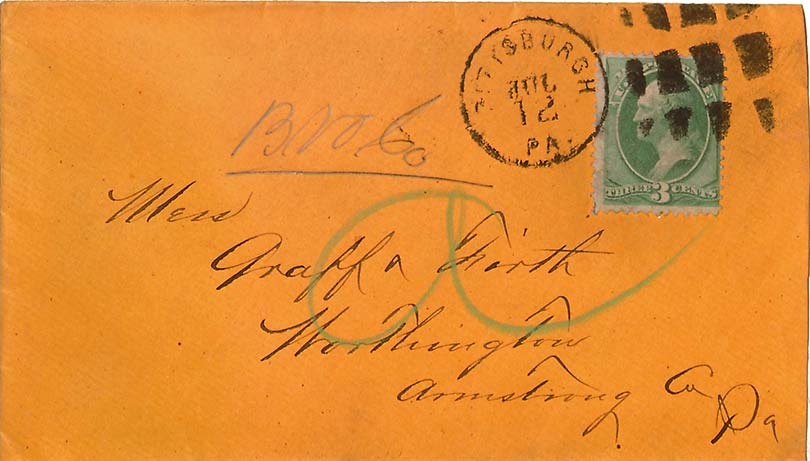 PITTSBURGH
JUL
12
PA.
THREE 3 CENTS
Mess
Graff & Firth
Worthington
Armstrong Co
Pa